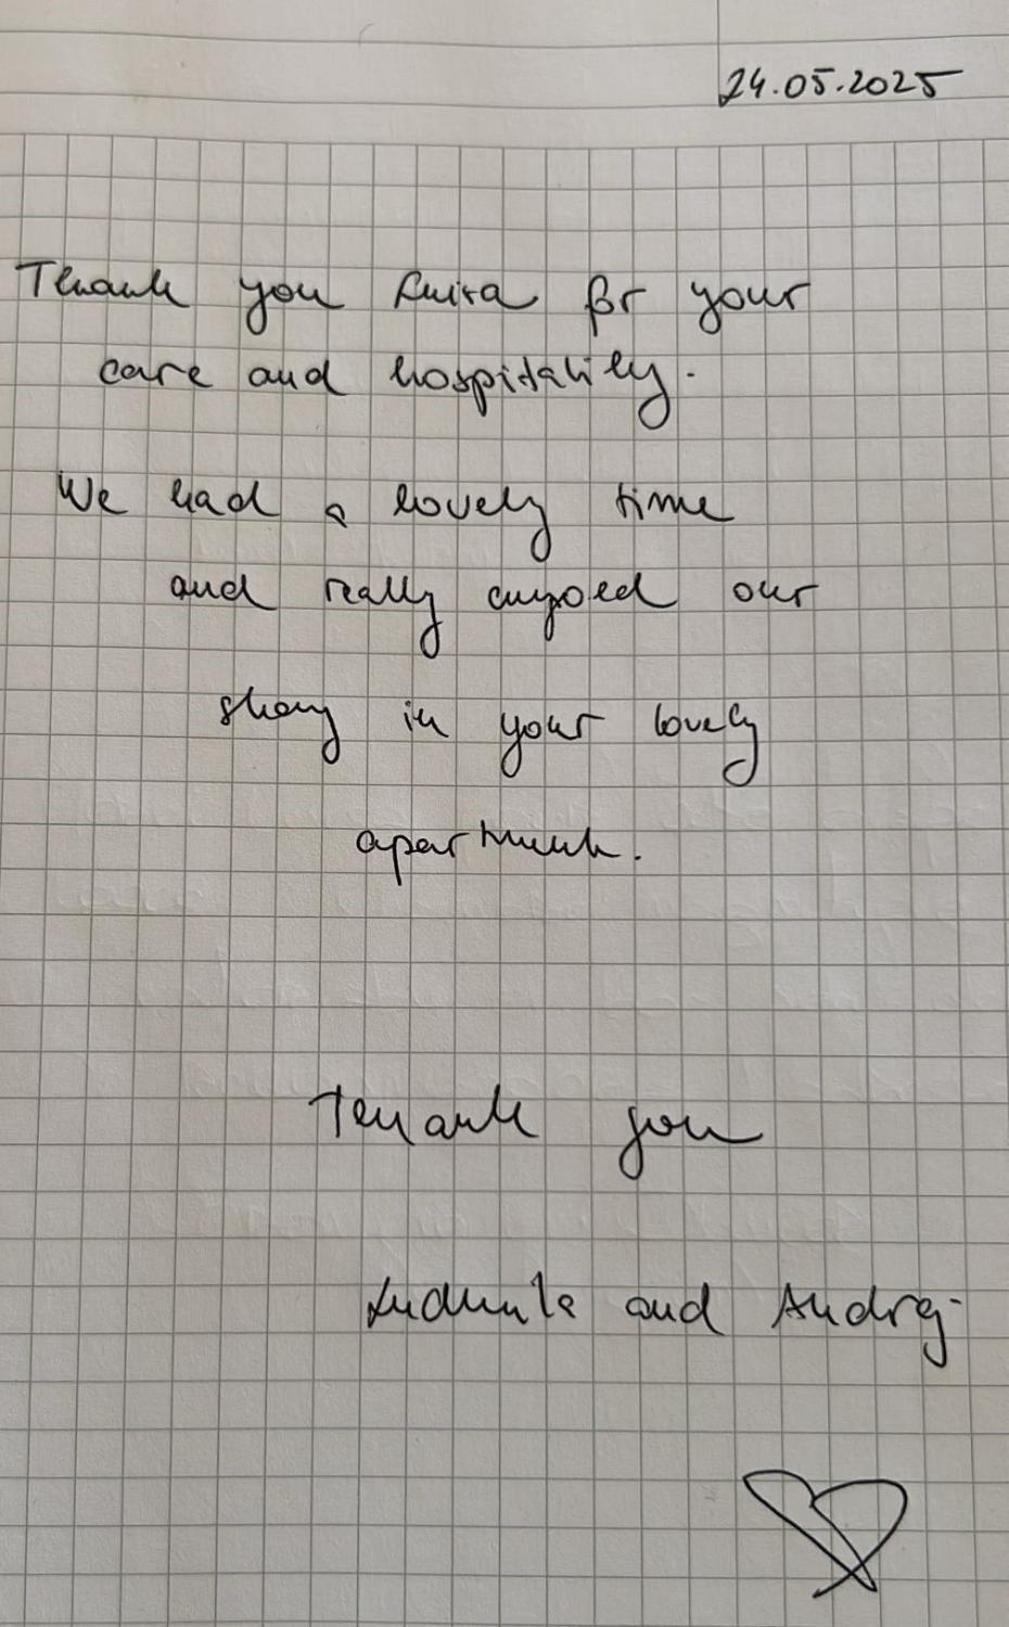 24.05.2025
Thank you Luiza for your
care and hospitality.
We had a lovely time
and really enyoed our
stay in your lovely
apartment.
Thank you
Ludmila and Andrej